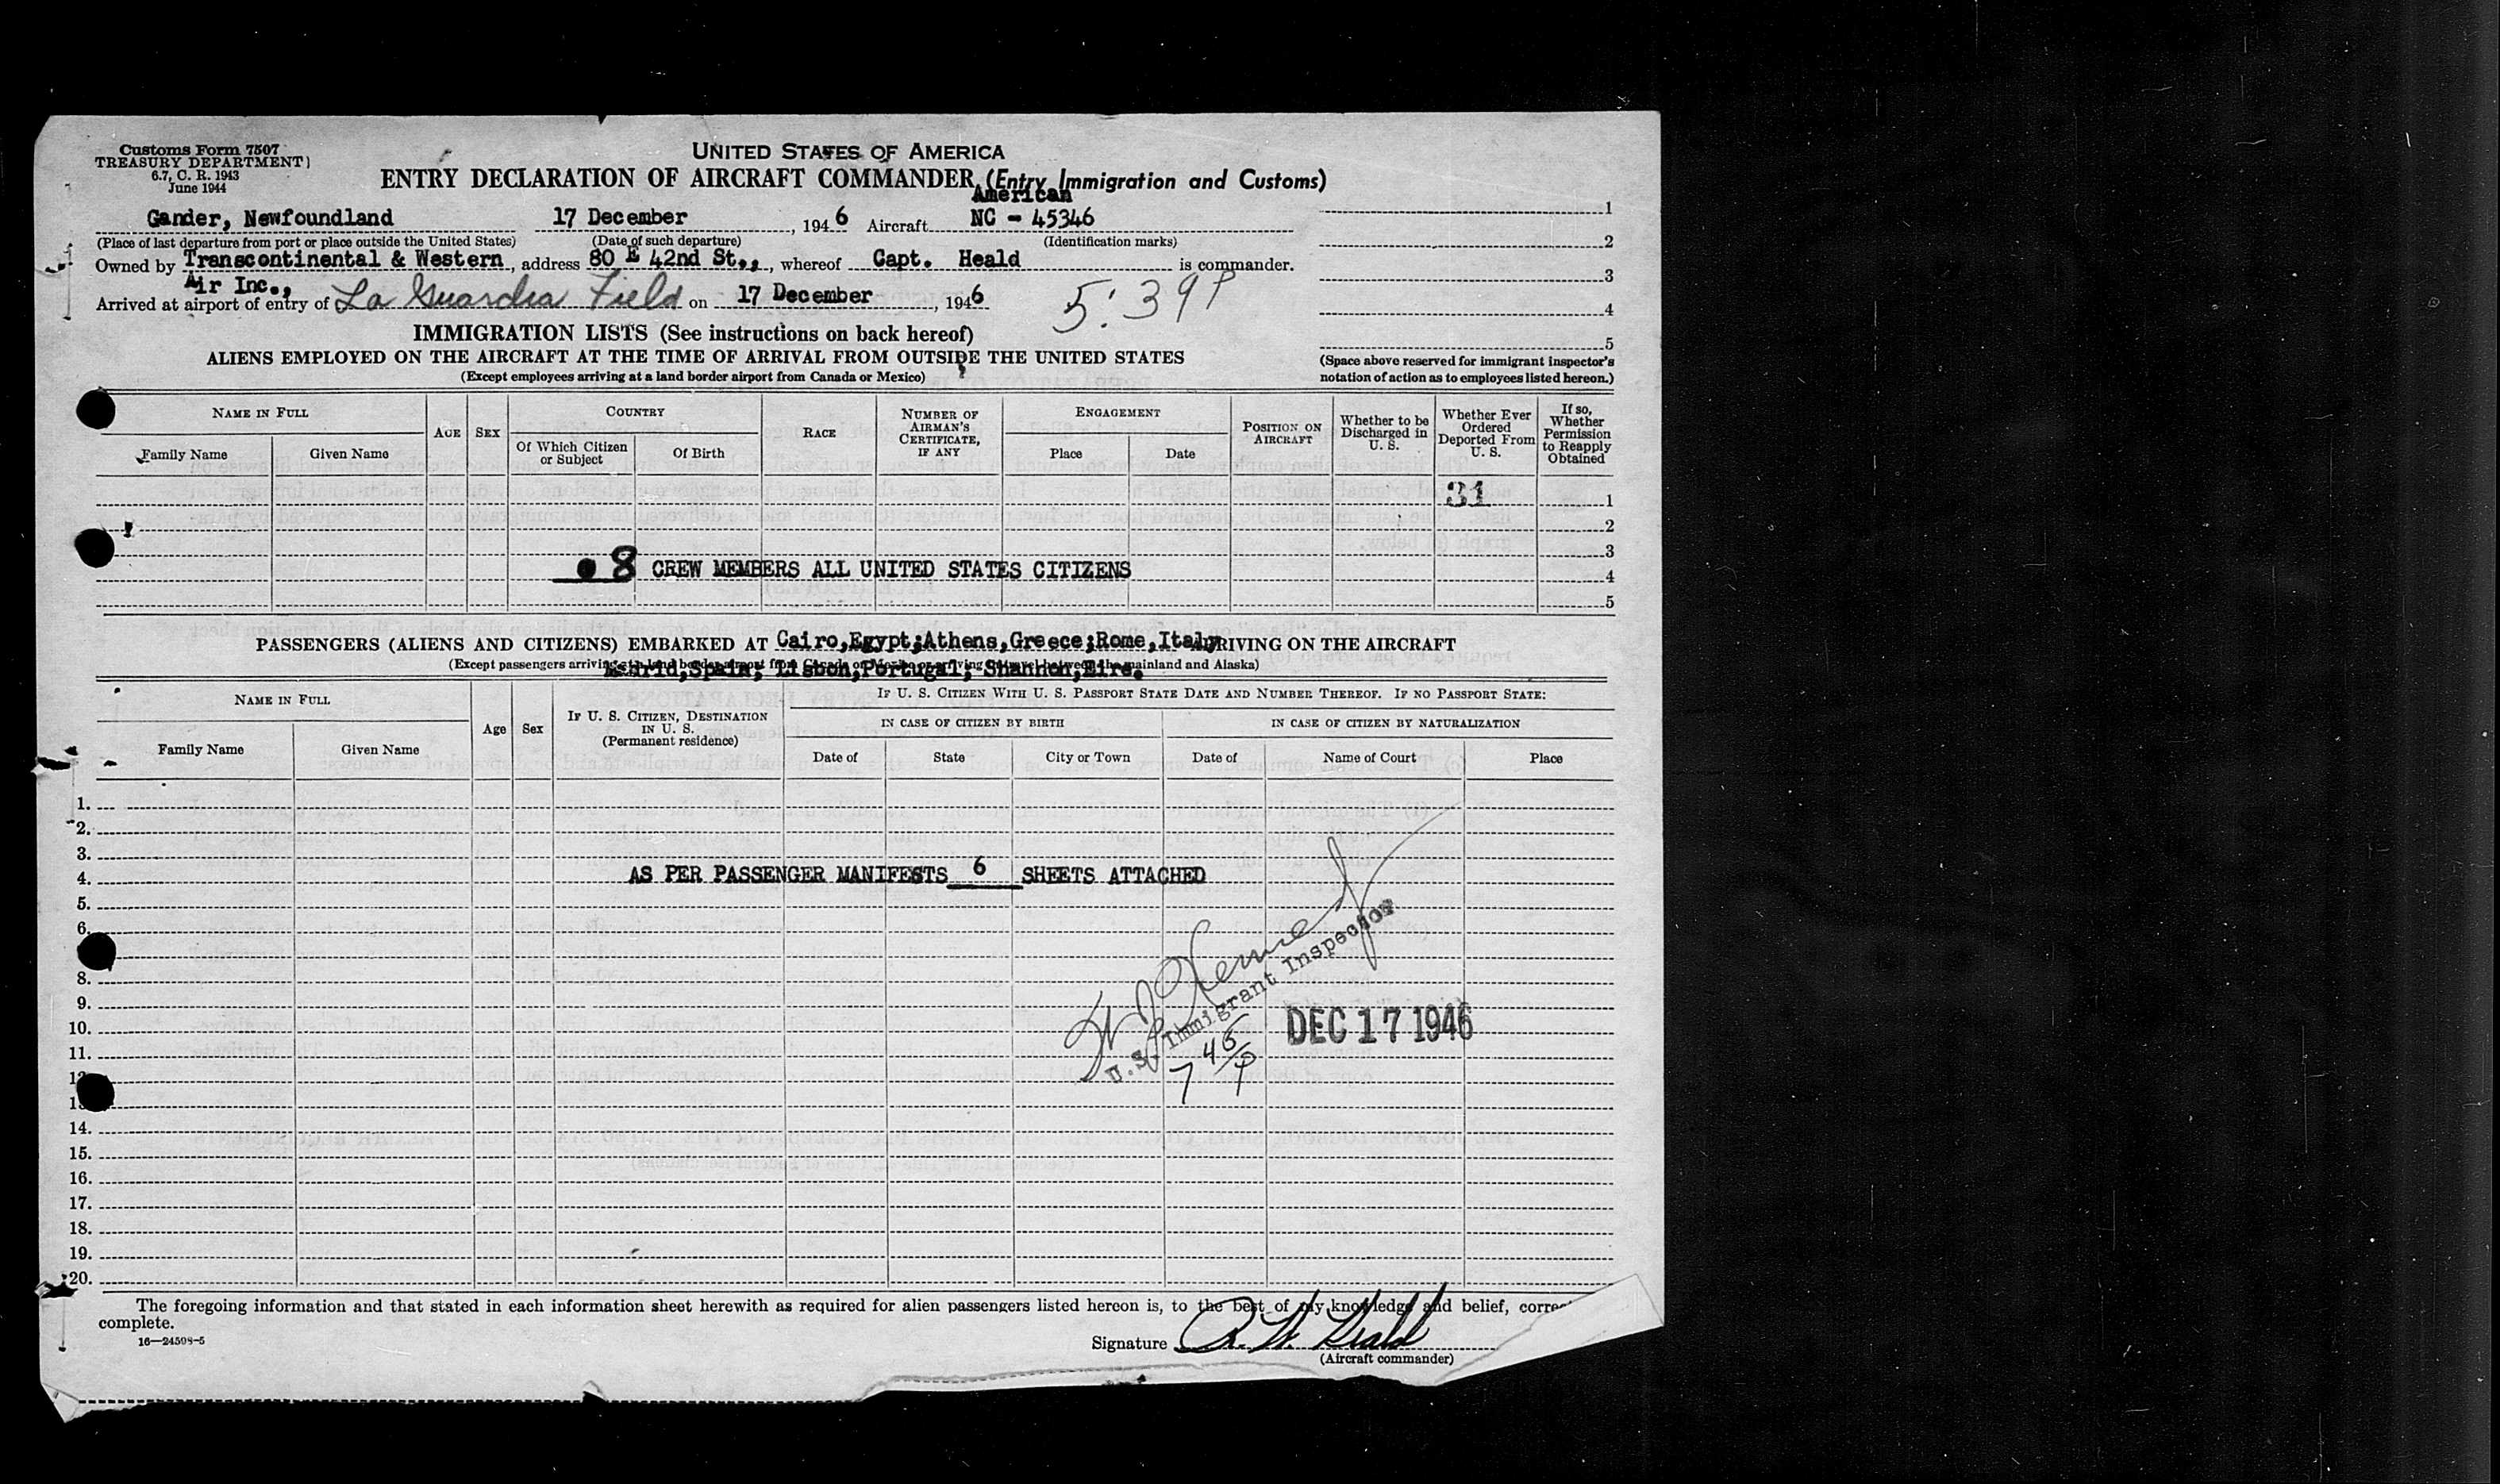 Customs Form 7507
TREASURY DEPARTMENT)
6.7, C. R. 1943
June 1944
UNITED STATES OF AMERICA
ENTRY DECLARATION OF AIRCRAFT COMMANDER (Entry Immigration and Customs)
American
Gander, Newfoundland 17 December, 1946 Aircraft NC - 45346
(Place of last departure from port or place outside the United States) (Date of such departure) (Identification marks)
Owned by Transcontinental & Western, address 80 E 42nd St., whereof Capt. Heald is commander.
Air Inc.,
Arrived at airport of entry of La Guardia Field on 17 December, 1946 5:39P
1
2
3
4
5
(Space above reserved for immigrant inspector's
notation of action as to employees listed hereon.)
IMMIGRATION LISTS (See instructions on back hereof)
ALIENS EMPLOYED ON THE AIRCRAFT AT THE TIME OF ARRIVAL FROM OUTSIDE THE UNITED STATES
(Except employees arriving at a land border airport from Canada or Mexico)
NAME IN FULL
Family Name
Given Name
AGE
SEX
COUNTRY
Of Which Citizen
or Subject
Of Birth
RACE
NUMBER OF
AIRMAN'S
CERTIFICATE,
IF ANY
ENGAGEMENT
Place
Date
POSITION ON
AIRCRAFT
Whether to be
Discharged in
U. S.
Whether Ever
Ordered
Deported From
U. S.
If so,
Whether
Permission
to Reapply
Obtained
31
1
2
3
8 CREW MEMBERS ALL UNITED STATES CITIZENS
4
5
PASSENGERS (ALIENS AND CITIZENS) EMBARKED AT Cairo,Egypt;Athens,Greece;Rome,Italy ARRIVING ON THE AIRCRAFT
(Except passengers arriving at a land border airport from Canada or Mexico or arriving by travel between the mainland and Alaska)
Madrid,Spain; Lisbon,Portugal; Shannon,Eire.
NAME IN FULL
Family Name
Given Name
Age
Sex
IF U. S. CITIZEN, DESTINATION
IN U. S.
(Permanent residence)
IF U. S. CITIZEN WITH U. S. PASSPORT STATE DATE AND NUMBER THEREOF. IF NO PASSPORT STATE:
IN CASE OF CITIZEN BY BIRTH
IN CASE OF CITIZEN BY NATURALIZATION
Date of
State
City or Town
Date of
Name of Court
Place
1.
2.
3.
4. AS PER PASSENGER MANIFESTS 6 SHEETS ATTACHED
5.
6.
8.
9.
10.
U.S. Immigrant Inspector
DEC 17 1946
7 45/P
11.
14.
15.
16.
17.
18.
19.
20.
The foregoing information and that stated in each information sheet herewith as required for alien passengers listed hereon is, to the best of my knowledge and belief, correct
complete.
16—24598-5
Signature R. W. Heald
(Aircraft commander)